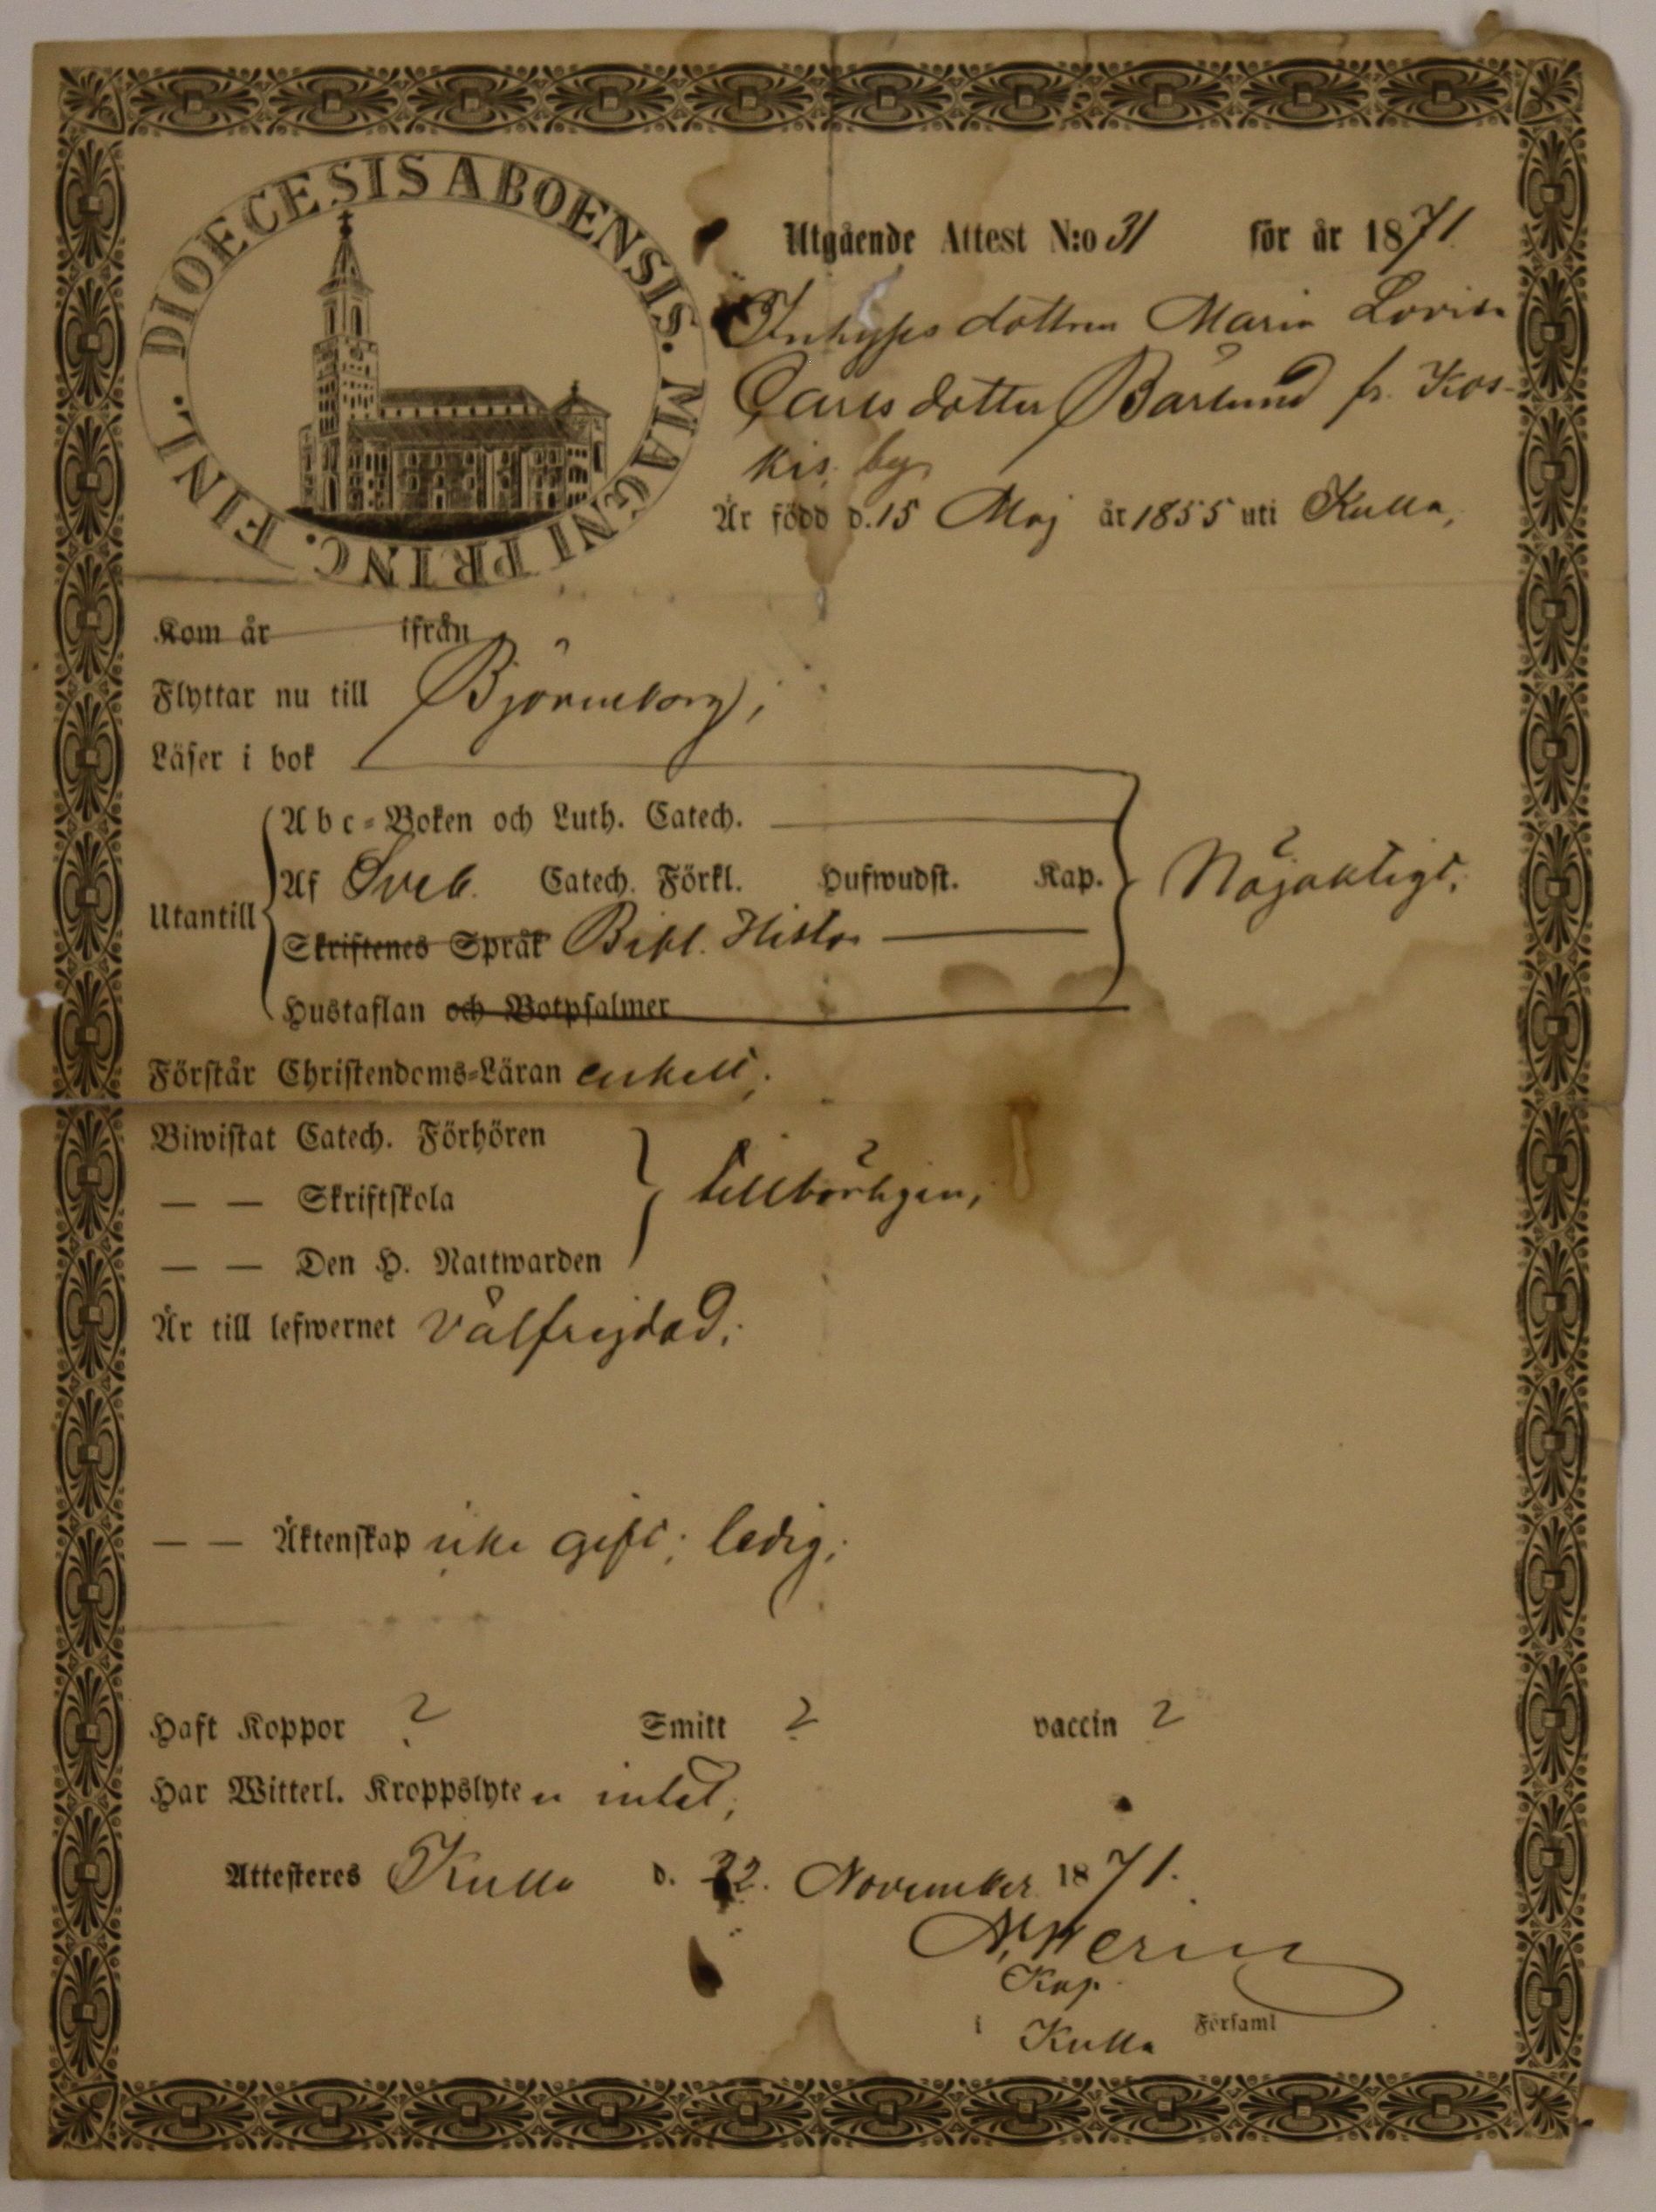 DIOECESIS ABOENSIS. MAGNI PRINC. FINL.
Utgående Attest N:o 31 för år 1871.
Inhyses dottren Maria Lovisa
Carlsdotter Bärlund fr. Kos-
kis by
Är född d. 15 Maj år 1855 uti Kulla,
Kom år ifrån
Flyttar nu till Björneborg;
Läser i bok
Abc-Boken och Luth. Catech.
Utantill Af Sveb. Catech. Förkl. Hufwudst. Kap. Nöjaktigt;
Skriftenes Språk Bibl. Histor
Hustaflan och Botpsalmer
Förstår Christendoms-Läran enkelt;
Biwistat Catech. Förhören
— — Skriftskola tillbörligen;
— — Den H. Nattwarden
Är till lefwernet välfrejdad;
— — Äktenskap icke gift; ledig;
Haft Koppor ? Smitt ? vaccin ?
Har Witterl. Kroppslyten intet;
Attesteres Kulla d. 22. November 1871.
Kap.
i Kulla Församl